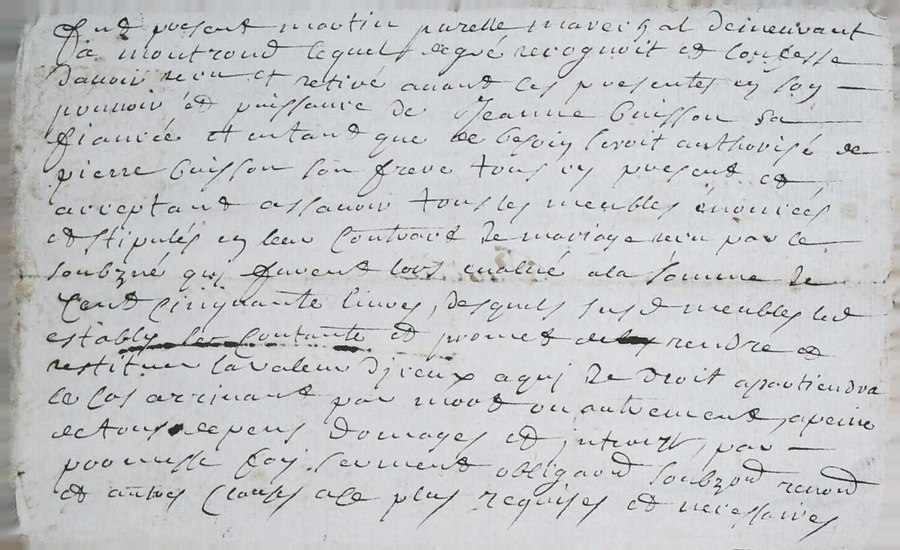 fut present martin purelle marechal demeurant
a montrond lequel degré recognoit et confesse
davoir receu et retiré avant ces presentes en son
pouvoir et puissance de Jeanne buisson sa
fiancée et entant que de besoin seroit authorisé de
pierre buisson son frere tous icy present et
acceptant assavoir tous les meubles enoncés
et stipulés en leur contract de mariage receu par le
soubzné quy furent lors evalué a la somme de
cent cinquante livres, desquels susd meubles led
estably se contante et promet de rendre et
restituer la valeur diceux a quy de droit apartiendra
le cas arrivant par mort ou autrement, a peine
de tous depens domages et interest, par
promesse foy serment obligaon soubzon renon
et autres clauses a ce plus requises et necessaires